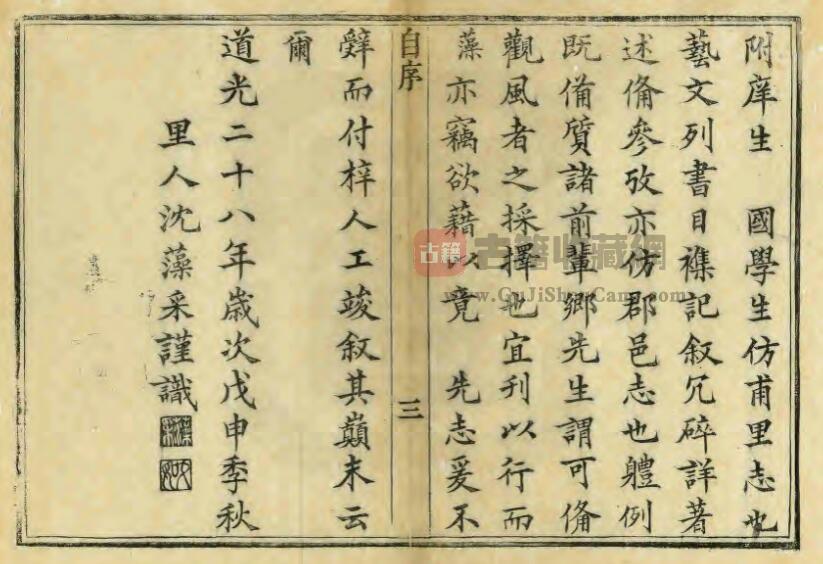 附庠生　國學生仿甫里志也
藝文列書目襍記叙冗碎詳著
述俻參攷亦仿郡邑志也軆例
既俻質諸前輩鄉先生謂可俻
觀風者之採擇也宜刊以行而
藻亦竊欲藉以竟　先志爰不
自序
三
辤而付梓人工竣叙其巔末云
爾
道光二十八年歲次戊申季秋
里人沈藻采謹識
古籍
古籍收藏網
www.GuJiShouCang.com